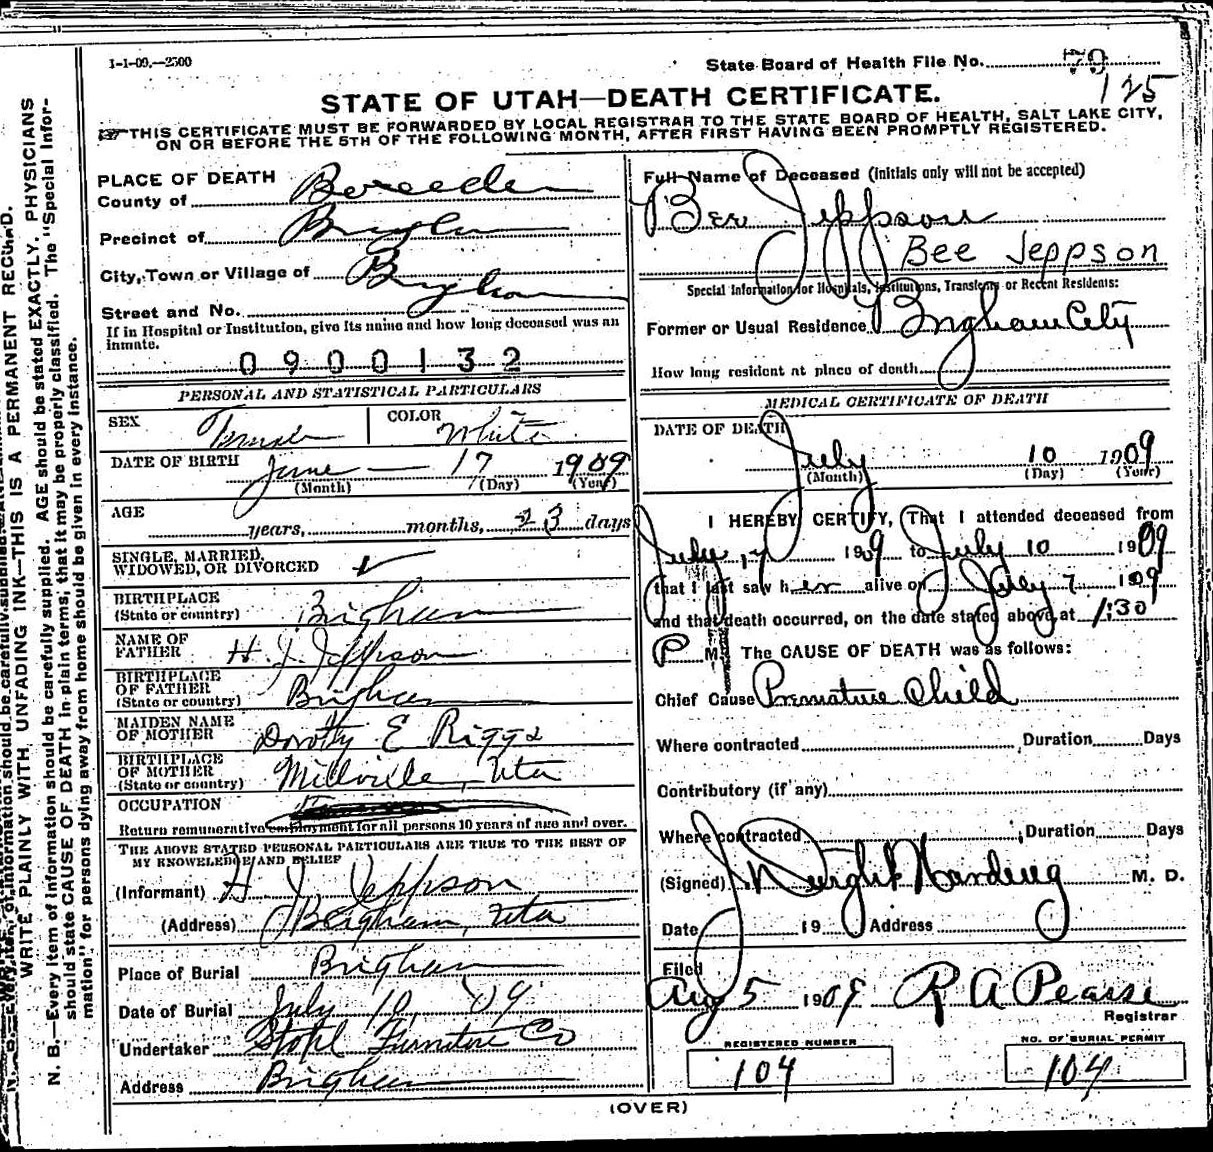 1-1-09.—2500
State Board of Health File No. 79
125
STATE OF UTAH—DEATH CERTIFICATE.
THIS CERTIFICATE MUST BE FORWARDED BY LOCAL REGISTRAR TO THE STATE BOARD OF HEALTH, SALT LAKE CITY,
ON OR BEFORE THE 5TH OF THE FOLLOWING MONTH, AFTER FIRST HAVING BEEN PROMPTLY REGISTERED.
PLACE OF DEATH
County of
Precinct of Brigham
City, Town or Village of Brigham
Street and No.
If in Hospital or Institution, give its name and how long deceased was an
inmate.
0900132
PERSONAL AND STATISTICAL PARTICULARS
SEX Female COLOR White
DATE OF BIRTH June 17 1909
(Month) (Day) (Year)
AGE
years, months, 23 days
SINGLE, MARRIED,
WIDOWED, OR DIVORCED
BIRTHPLACE
(State or country) Brigham
NAME OF
FATHER H. J. Jeppson
BIRTHPLACE
OF FATHER
(State or country) Brigham
MAIDEN NAME
OF MOTHER Dorothy E Riggs
BIRTHPLACE
OF MOTHER
(State or country) Millville, Uta
OCCUPATION
Return remunerative employment for all persons 10 years of age and over.
THE ABOVE STATED PERSONAL PARTICULARS ARE TRUE TO THE BEST OF
MY KNOWELEDGE AND BELIEF
(Informant) H. J. Jeppson
(Address) Brigham, Uta
Place of Burial Brigham
Date of Burial July 10, '09
Undertaker Stohl Furniture Co
Address Brigham
Full Name of Deceased (Initials only will not be accepted)
Bee Jeppson
Bee Jeppson
Special Information for Hospitals, Institutions, Transients or Recent Residents:
Former or Usual Residence Brigham City
How long resident at place of death
MEDICAL CERTIFICATE OF DEATH
DATE OF DEATH
July 10 1909
(Month) (Day) (Year)
I HEREBY CERTIFY, That I attended deceased from
July 1909 to July 10 1909
that I last saw her alive on July 7 1909
and that death occurred, on the date stated above, at 1:30
P M. The CAUSE OF DEATH was as follows:
Chief Cause Premature Child
Where contracted Duration Days
Contributory (if any)
Where contracted Duration Days
(Signed) J Dwight Harding M. D.
Date 19 Address
Filed
Aug 5 1909 R A Pearse
Registrar
REGISTERED NUMBER
104
NO. OF BURIAL PERMIT
104
(OVER)
WRITE PLAINLY WITH UNFADING INK—THIS IS A PERMANENT RECORD.
N. B.—Every item of information should be carefully supplied. AGE should be stated EXACTLY. PHYSICIANS
should state CAUSE OF DEATH in plain terms, that it may be properly classified. The "Special Infor-
mation" for persons dying away from home should be given in every instance.